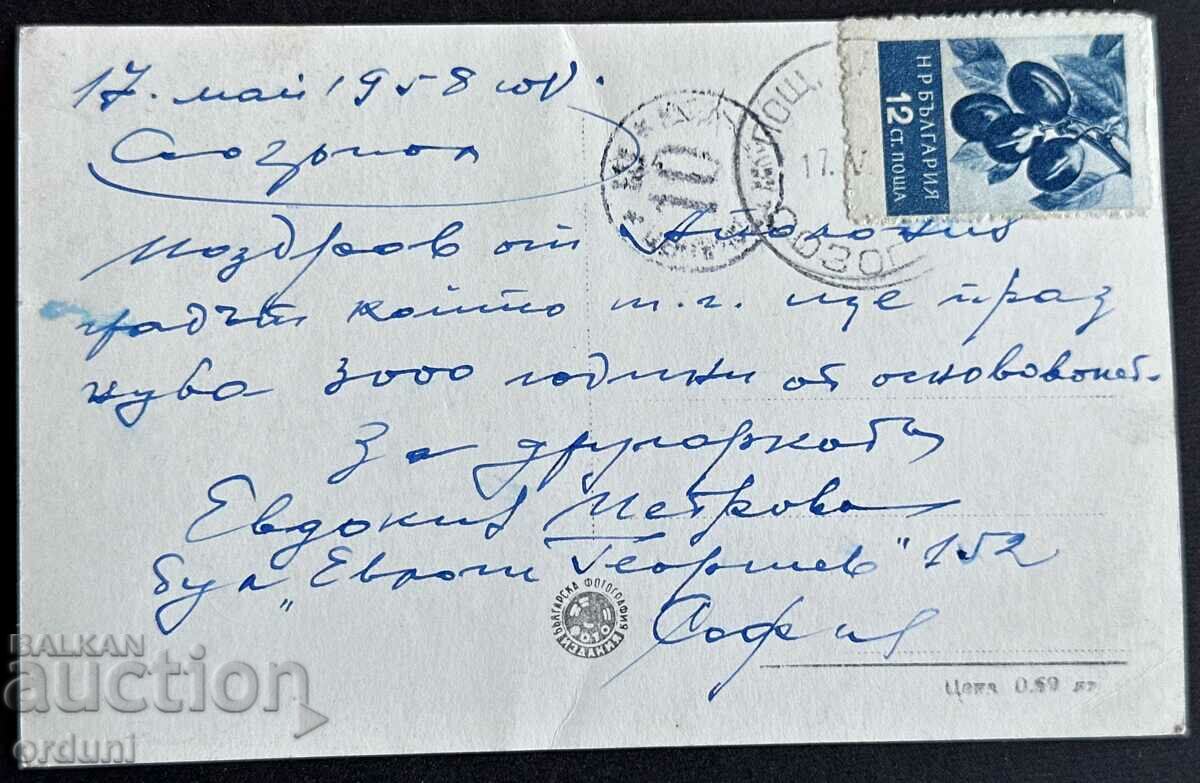 17. май 1958 год.
Созопол
Поздрав от Аполония
градът който т.г. ще праз
нува 3000 години от основаването
За другарката
Евдокия Петрова
бул „Евлоги Георгиев" 152
София
НРБЪЛГАРИЯ
12 СТ. ПОЩА
ПОЩ.
17. V
СОЗОП
10
БЪЛГАРСКА ФОТОГРАФИЯ
ФОТО
Цена 0.69 лв
BALKAN
auction
orduni